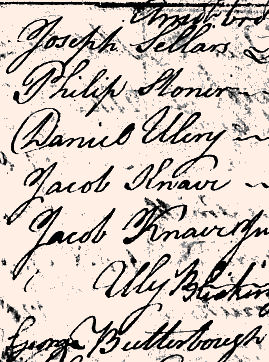 Joseph Sellars
Philip Stoner
Daniel Ulery
Jacob Knave
Jacob Knave Jur
Ully
George Butterbough